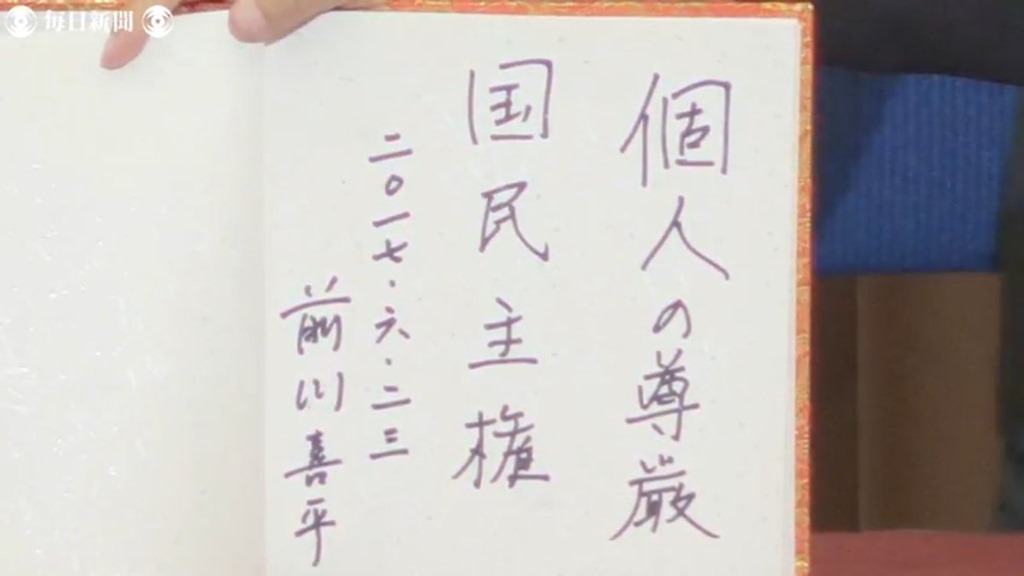 毎日新聞
個人の尊厳
国民主権
二〇一七・六・二三
前川喜平